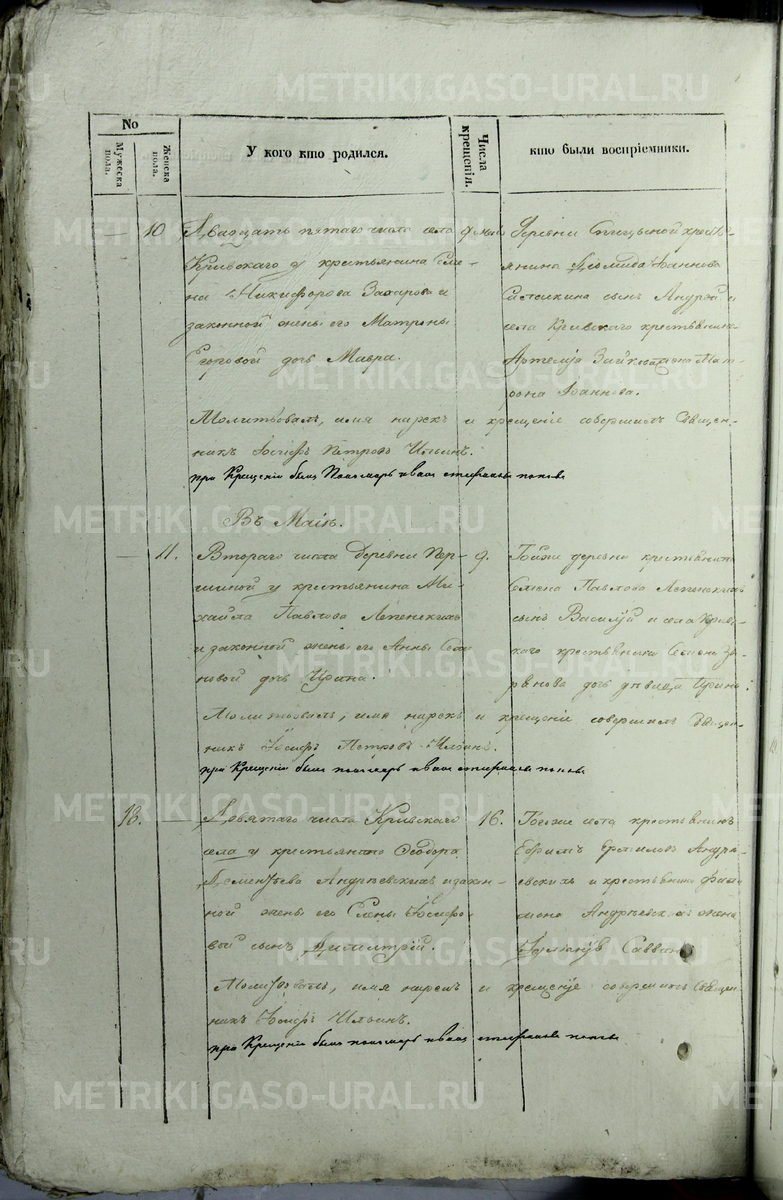 METRIKI.GASO-URAL.RU
No
Мужеска пола.
Женска пола.
У кого кто родился.
Числа крещенія.
кто были воспріемники.
10
Двадцать пятаго числа села
Кривскаго у крестьянина Семе-
на Никифорова Захарова и
законной жены его Матроны
Егоровой дочь Мавра.
9 Маія
Деревни крестья-
янина Іоаннова
сынъ Андрей и
села Кривскаго крестьянина
жена Мат-
рона Іоаннова.
Молитвовалъ, имя нарекъ и крещеніе совершилъ Священ-
никъ Іосифъ Петровъ Ильинъ.
при Крещеніи былъ Пономарь Иванъ Попов
Въ Маіѣ.
11.
Втораго числа деревни Пер-
шиной у крестьянина Ми-
хайла Павлова Лепенскихъ
и законной жены его Анны
новой дочь Ирина.
9.
Тойже деревни крестьянина
Семена Павлова Лепенскихъ
сынъ Василій и села Крив-
скаго крестьянина Семена Зы-
рянова дочь дѣвица Ирина.
Молитвовалъ, имя нарекъ и крещеніе совершилъ Священ-
никъ Іосифъ Петровъ Ильинъ.
при Крещеніи былъ пономарь Иванъ Попов
18.
Девятаго числа Кривскаго
села у крестьянина Ѳеодора
Дементьева Андреевскихъ и закон-
ной жены его Елены Іосифо-
вой сынъ Димитрій.
16.
Тогоже села крестьянинъ
Ефимъ Ермиловъ Андре-
евскихъ и крестьянина
Андреевскихъ жена
Саввина
Молитвовалъ, имя нарекъ и крещеніе совершилъ Священ-
никъ Іосифъ Ильинъ.
при Крещеніи былъ пономарь Иванъ Попов